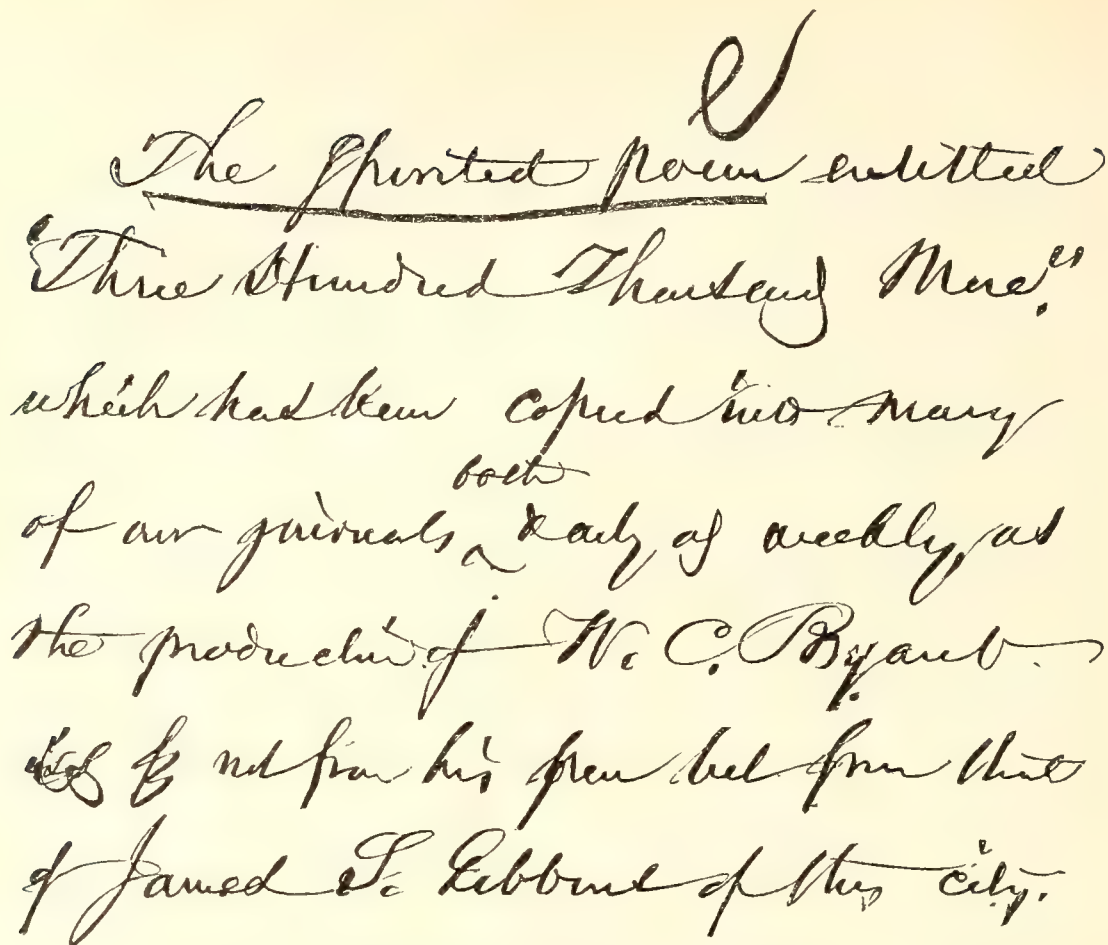 The Spirited poem entitled
"Three Hundred Thousand More"
which has been copied into many
both
of our journals daily & weekly, as
the production of W. C. Bryant
is not from his pen but from that
of James S. Gibbons of this city.